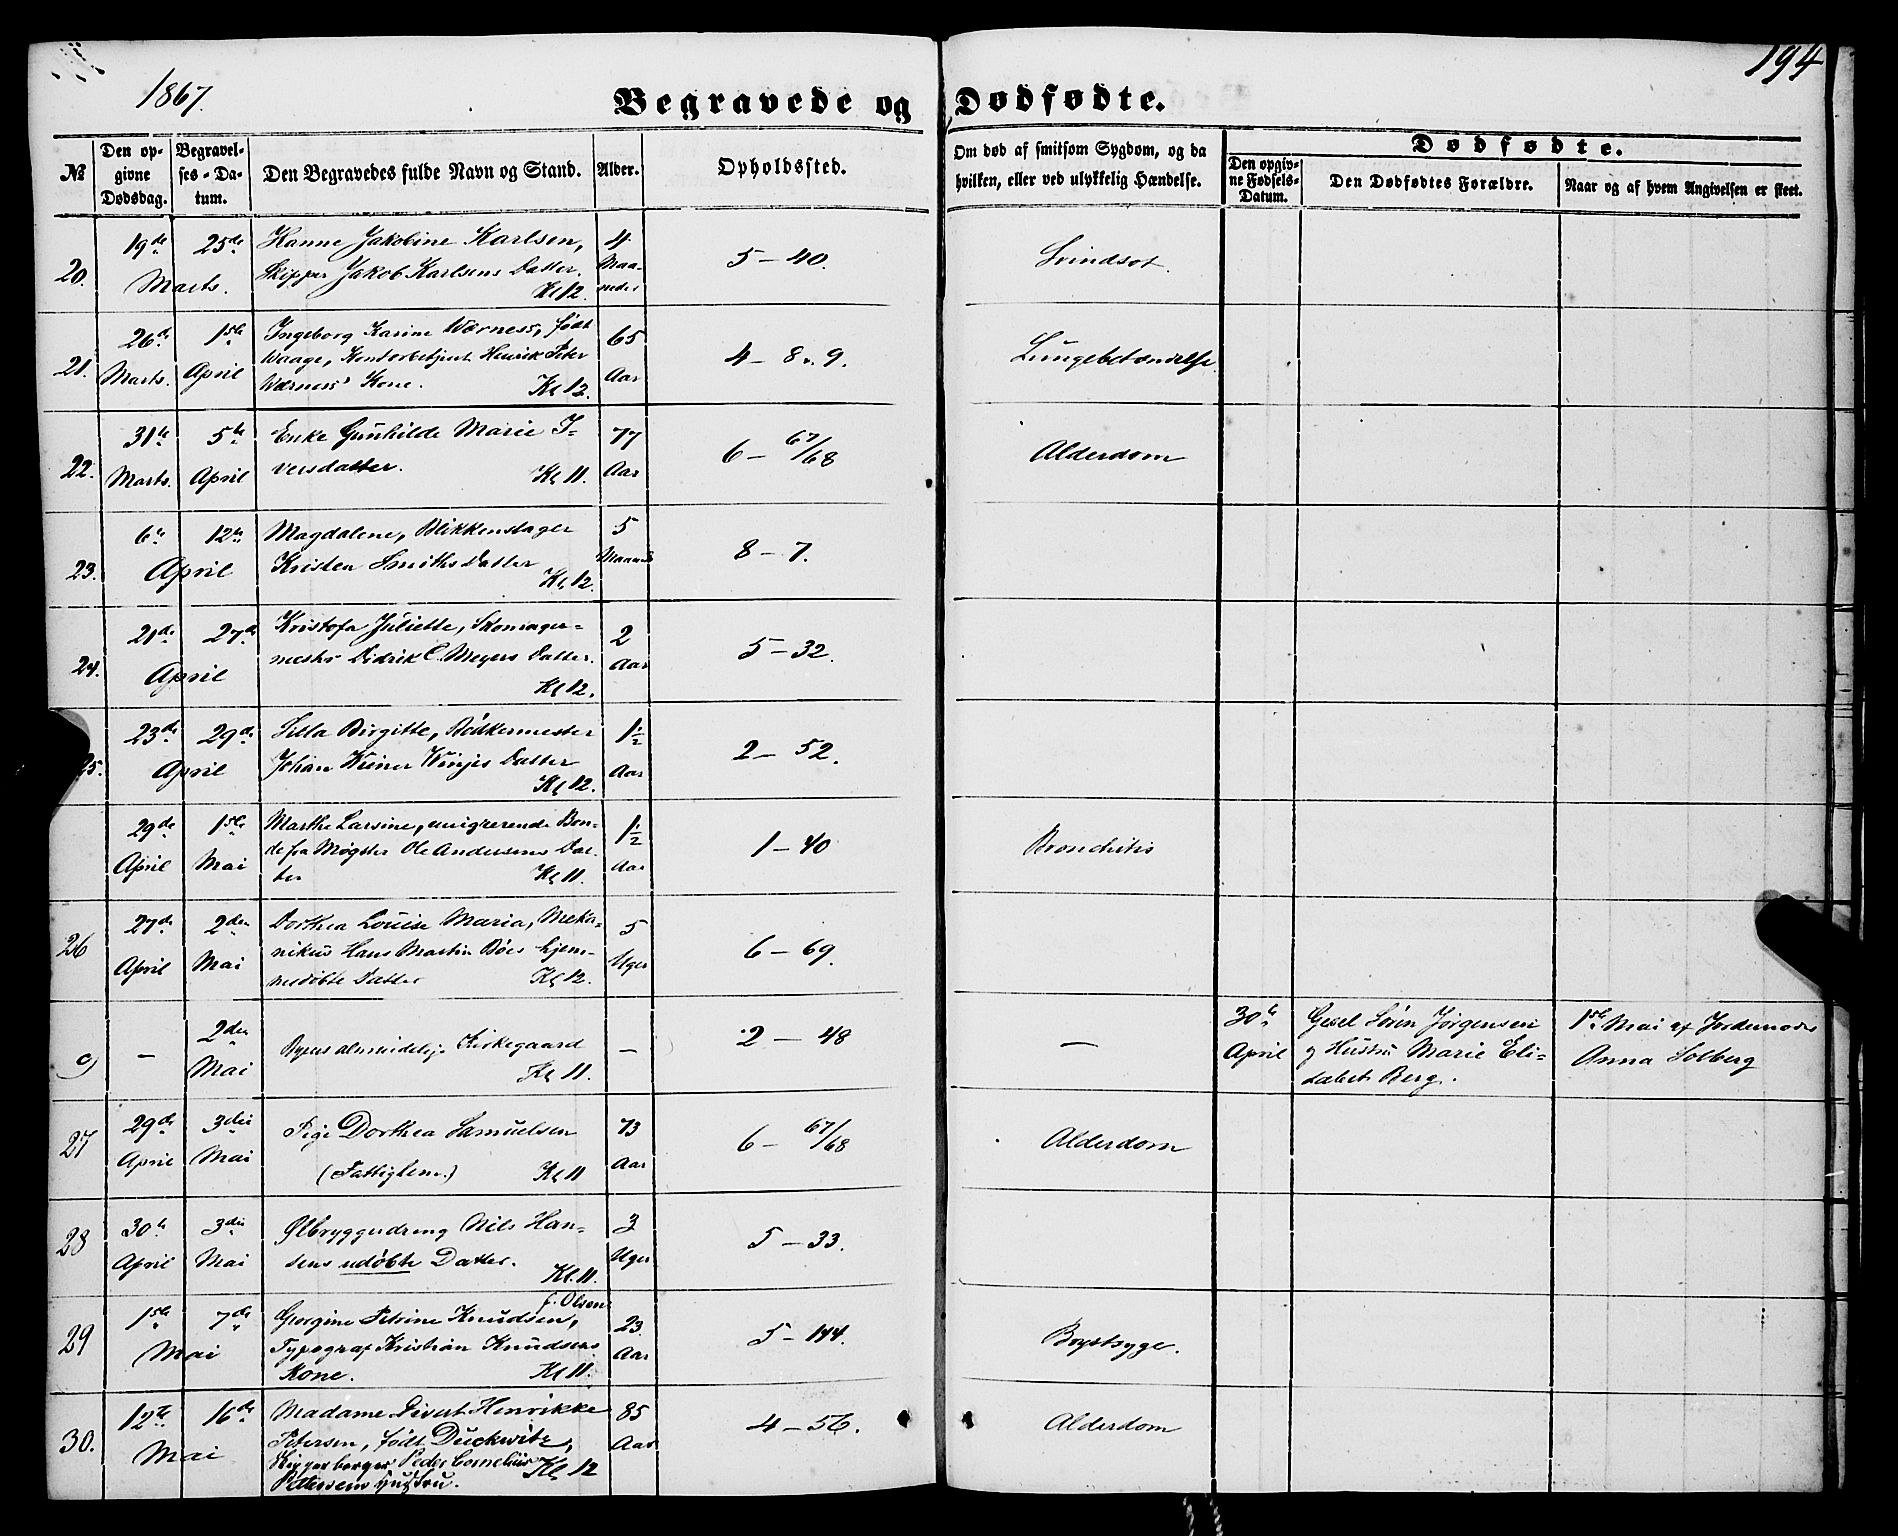 1867.
194
Begravede og Dødfødte.
№
Den op-
givne
Dødsdag.
Begravel-
ses-Da-
tum.
Den Begravedes fulde Navn og Stand.
Alder.
Opholdssted.
Om død af smitsom Sygdom, og da
hvilken, eller ved ulykkelig Hændelse.
Dødfødte.
Den opgiv-
ne Fødsels-
Datum.
Den Dødfødtes Forældre.
Naar og af hvem Angivelsen er skeet.
20. 19de 25de Marts.
Hanne Jakobine Karlsen,
Skipper Jakob Karlsens Datter.
Kl 12.
4 Maa-
neder
5 - 40.
Svindsot.
21. 26de Marts. 1ste April
Ingeborg Karine Wærness, født
Waage, Kontorbetjent Henrik Peter
Wærness' Kone.
Kl 12.
65 Aar
4 - 8 . 9.
Lungebetændelse
22. 31te Marts. 5te April
Enke Gunhilde Marie I-
versdatter.
Kl 11.
77 Aar
6 - 67/68
Alderdom
23. 6te 12te April
Magdalene, Blikkenslager
Kristen Smiths Datter
Kl 12.
5 Maaned
8 - 7.
24. 21de 27de April
Kristofa Juliette, Skomager-
mester Didrik C. Meyers Datter.
Kl 12.
2 Aar
5 - 32.
25. 23de 29de April
Birgitte, Bødkermester
Johan Winjes Datter
Kl 12.
1½ Aar
2 - 52.
29de April 1ste Mai
Marthe Larsine, emigrerende Bon-
de fra Møgster Ole Andersens Dat-
ter
Kl 11.
1½ Aar
1 - 40
Bronchitis
26 27de April 2den Mai
Dorthea Louise Maria, Meka-
nikus Hans Martin Bøes hjem-
medøbte Datter
Kl 12.
5 Uger
6 - 69.
9 - 2den Mai
Byens almindelige Kirkegaard
Kl 11.
-
2 - 48
-
30te April
Gesel Søren Jørgensen
og Hustru Marie Eli-
sabet Berg.
1ste Mai af Jordemoder
Anna Solberg
27 29de April 3die Mai
Pige Dorthea Samuelsen
(Fattiglem.)
Kl 11
73 Aar
6 - 67/68
Alderdom
28 30te April 3die Mai
Ølbryggerdreng Nils Han-
sens udøbte Datter.
Kl. 11.
3 Uger
5 - 33.
29 1ste 7de Mai
f. Olsen
Georgine Petrine Knudsen,
Typograf Kristian Knudsens
Kone.
Kl 11.
23. Aar
5 - 144.
Brystsyge.
30. 12te 16de Mai
Madame Divert Henrikke
Petersen, født Duckwitz,
Skipper borger Peder Cornelius
Petersens Hustru.
Kl 12
85 Aar
4 - 56.
Alderdom